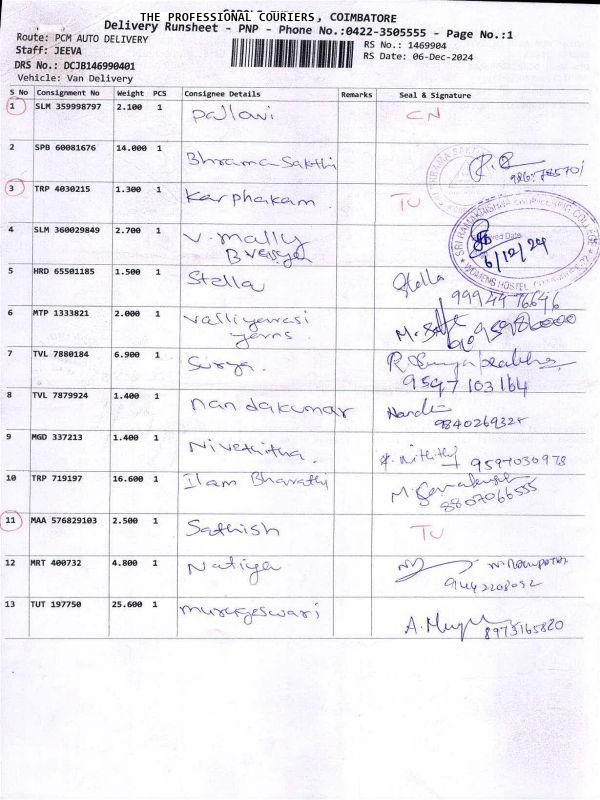 THE PROFESSIONAL COURIERS, COIMBATORE
Delivery Runsheet - PNP - Phone No.:0422-3505555 - Page No.:1
Route: PCM AUTO DELIVERY
Staff: JEEVA
DRS No.: DCJB146990401
Vehicle: Van Delivery
RS No.: 1469904
RS Date: 06-Dec-2024
S No Consignment No Weight PCS Consignee Details Remarks Seal & Signature
1 SLM 359998797 2.100 1 Pallavi CN
2 SPB 60081676 14.000 1 Bhrama Sakthi
3 TRP 4030215 1.300 1 Karphakam TU
4 SLM 360029849 2.700 1 V. Mally
SRI RAMAKRISHNA
WOMENS HOSTEL
6/12/24
5 HRD 65501185 1.500 1 Stella Stella
9994476646
6 MTP 1333821 2.000 1 Valliyarasi
yarns
7 TVL 7880184 6.900 1 Surya.
9597103164
8 TVL 7879924 1.400 1 Nandakumar
9 MGD 337213 1.400 1 Nivethitha. 9597030978
10 TRP 719197 16.600 1 Ilam Bharathi
8807066555
11 MAA 576829103 2.500 1 Sathish TU
12 MRT 400732 4.800 1 Natiya
9442208092
13 TUT 197750 25.600 1 Murugeswari
8973165820